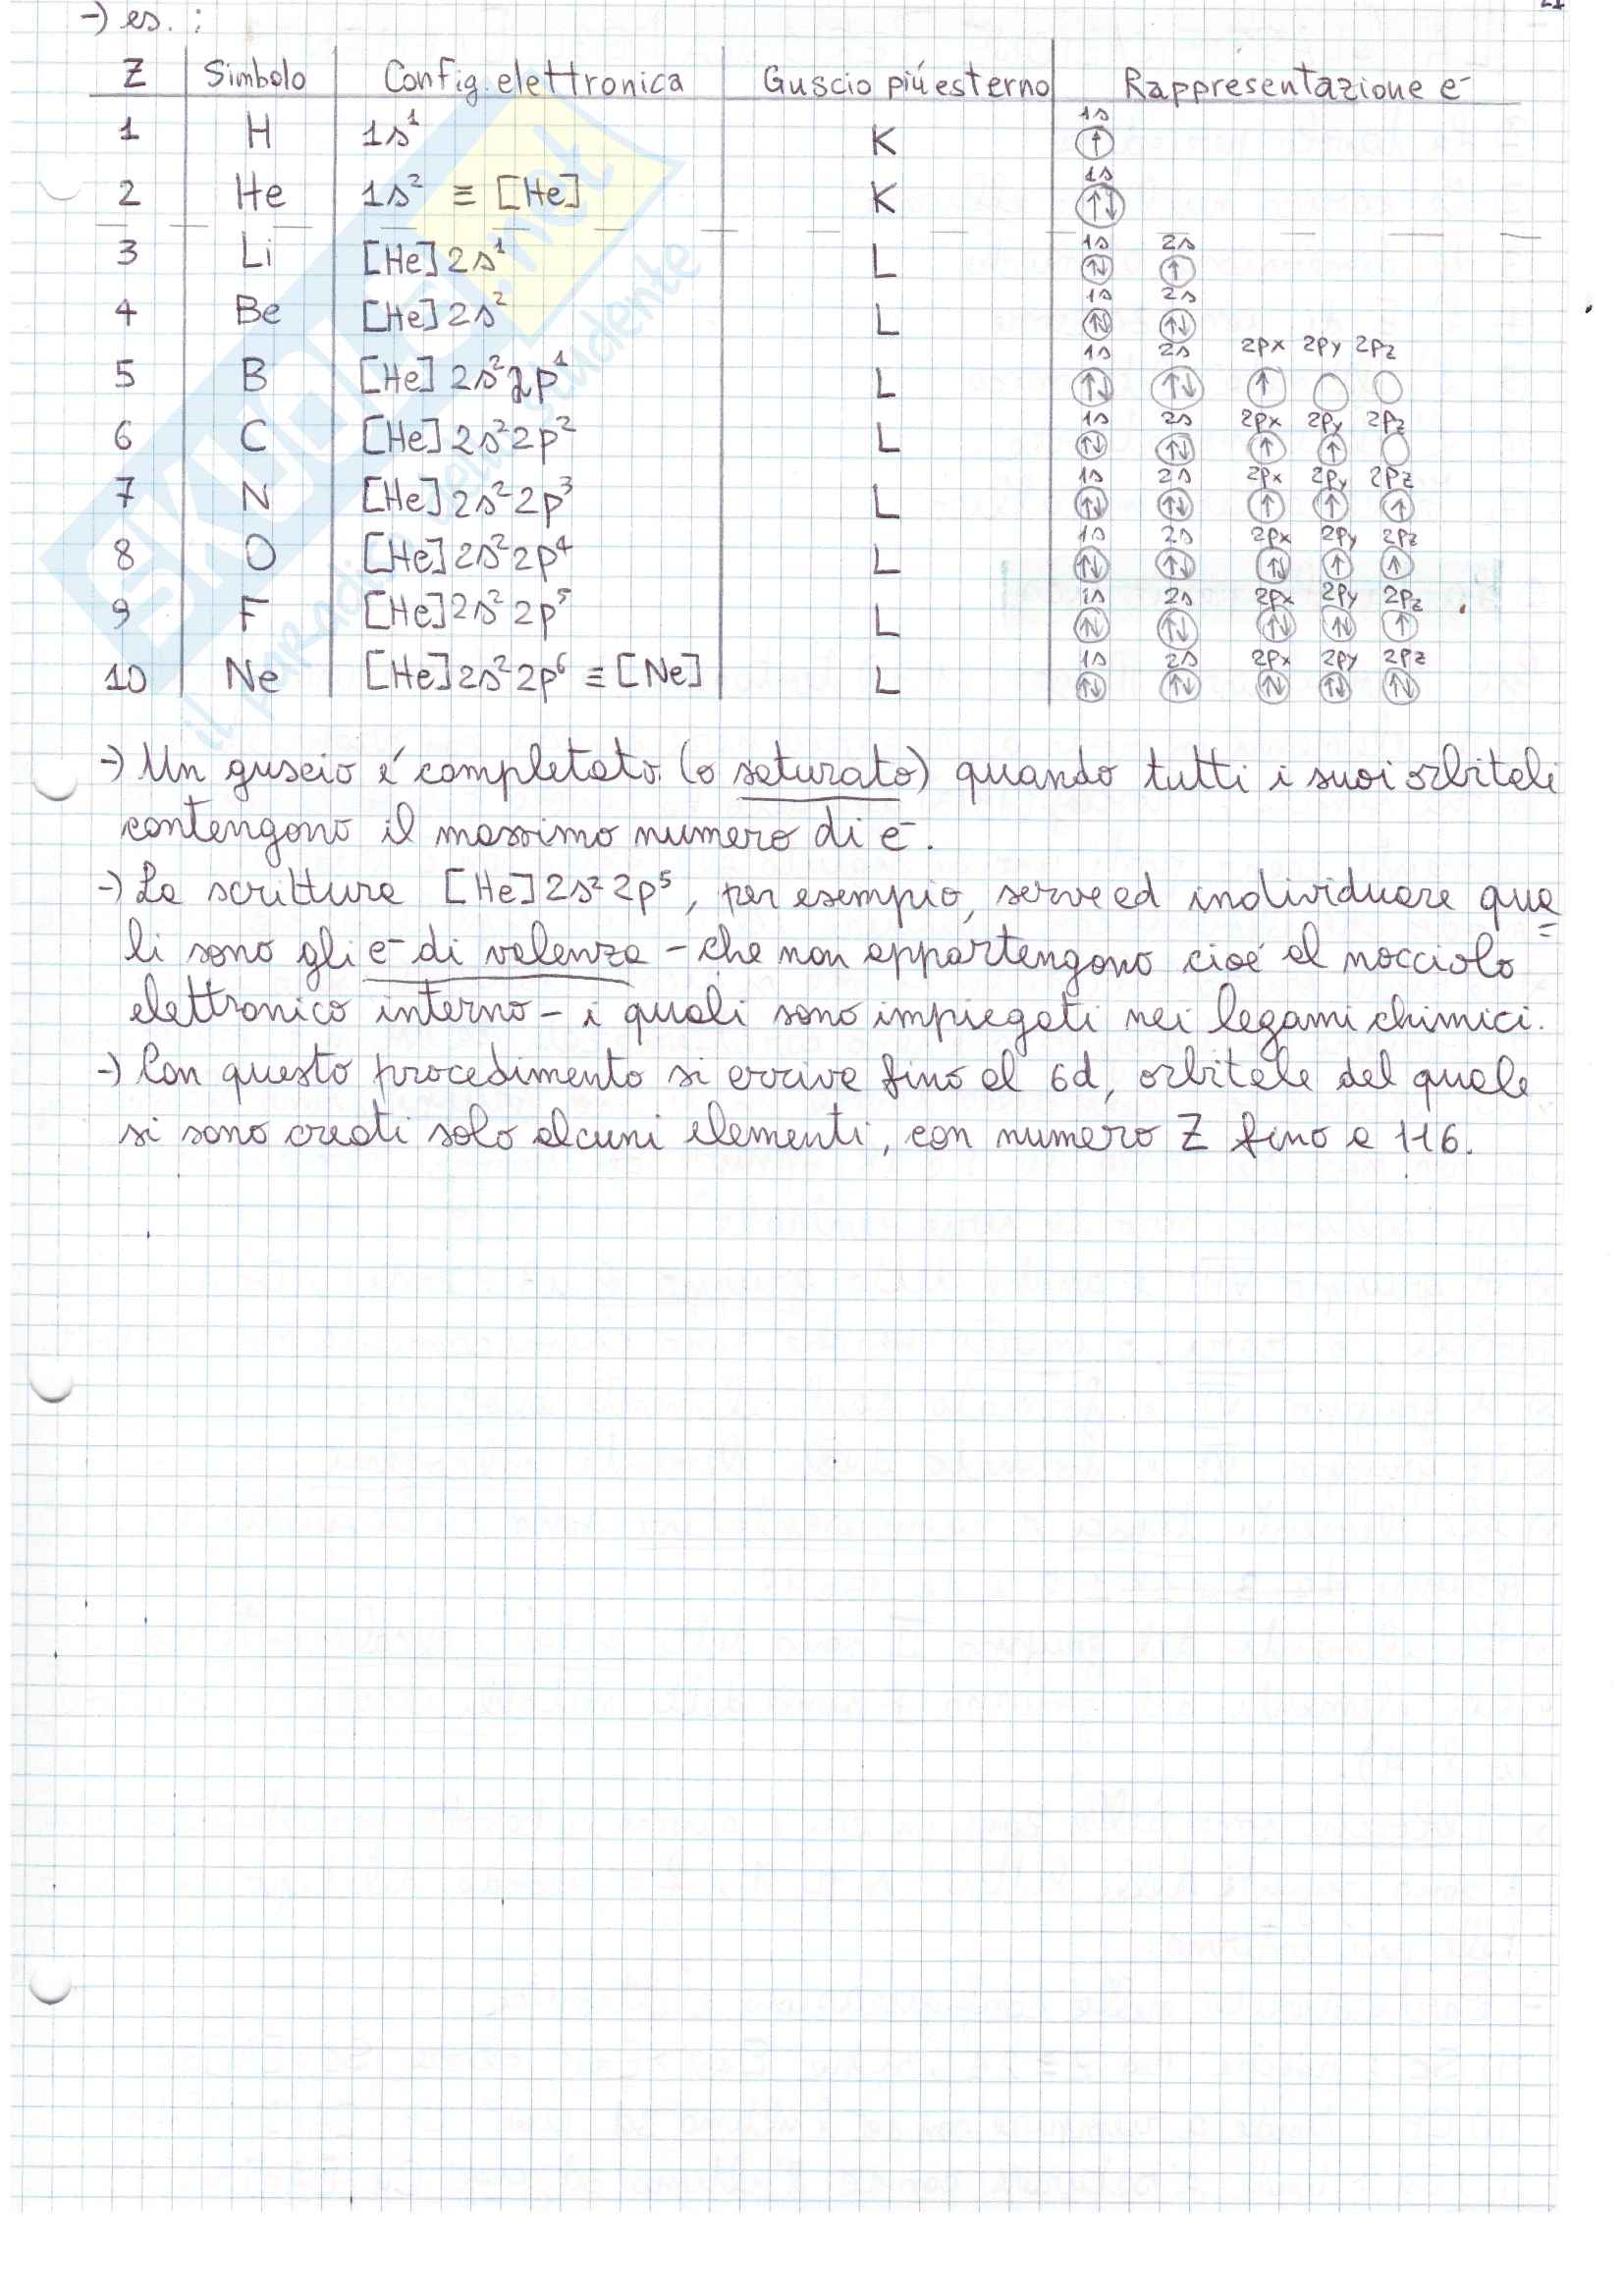 21
→ es. :
Z Simbolo Config. elettronica Guscio piú esterno Rappresentazione e⁻
1s
1 H 1s¹ K ↑
1s
2 He 1s² ≡ [He] K ↑↓
1s 2s
3 Li [He] 2s¹ L ↑↓ ↑
1s 2s
4 Be [He] 2s² L ↑↓ ↑↓
1s 2s 2px 2py 2pz
5 B [He] 2s² 2p¹ L ↑↓ ↑↓ ↑ ○ ○
1s 2s 2px 2py 2pz
6 C [He] 2s² 2p² L ↑↓ ↑↓ ↑ ↑ ○
1s 2s 2px 2py 2pz
7 N [He] 2s² 2p³ L ↑↓ ↑↓ ↑ ↑ ↑
1s 2s 2px 2py 2pz
8 O [He] 2s² 2p⁴ L ↑↓ ↑↓ ↑↓ ↑ ↑
1s 2s 2px 2py 2pz
9 F [He] 2s² 2p⁵ L ↑↓ ↑↓ ↑↓ ↑↓ ↑
1s 2s 2px 2py 2pz
10 Ne [He] 2s² 2p⁶ ≡ [Ne] L ↑↓ ↑↓ ↑↓ ↑↓ ↑↓
→ Un guscio é completato (o saturato) quando tutti i suoi orbitali
contengono il massimo numero di e⁻.
→ La scrittura [He] 2s² 2p⁵, per esempio, serve ad individuare qua
li sono gli e⁻ di valenza - che non appartengono cioé al nocciolo
elettronico interno - i quali sono impiegati nei legami chimici.
→ Con questo procedimento si arriva fino al 6d, orbitale del quale
si sono creati solo alcuni elementi, con numero Z fino a 116.